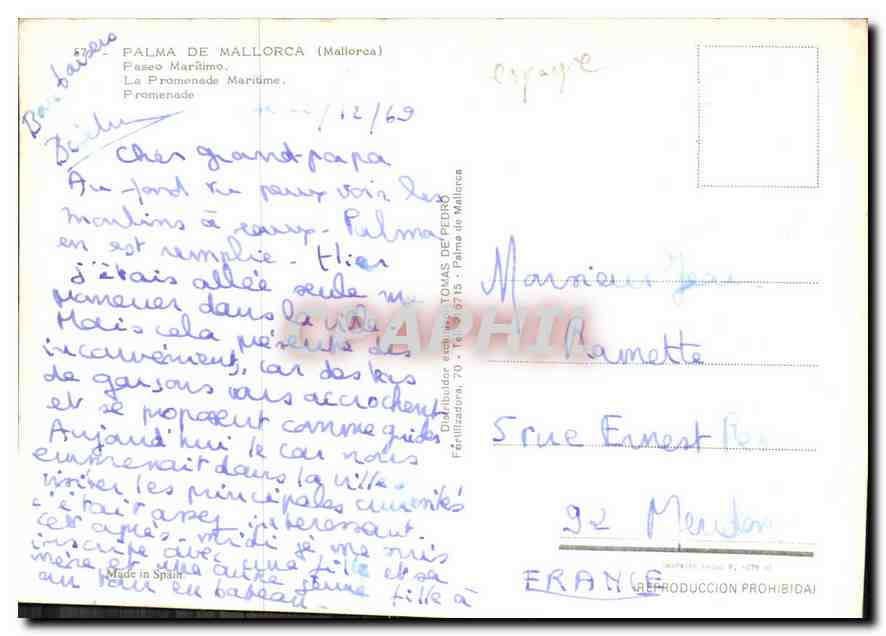 67 - PALMA DE MALLORCA (Mallorca)
Paseo Marítimo.
La Promenade Maritime.
Promenade
espagne
Bons baisers
/12/69
Cher grand papa
Au fond tu peux voir les
moulins à eaux. Palma
en est remplie. Hier
j'étais allée seule me
promener dans la ville.
Mais cela présente des
inconvénients, car des
de garçons vous accrochent
et se proposent comme guides
Aujourd'hui le car nous
emmenait dans la ville
visiter les principales curiosités
c'était assez intéressant.
cet après-midi je me suis
inscrite avec une fille et sa
mère et une autre jeune fille à
un tour en bateau.
Made in Spain
Distribuidor exclusivo TOMAS DE PEDRO
Fertilizadora, 70 - Palma de Mallorca
CPAPHIL
Monsieur Jean
Ramette
5 rue Ernest
92 Meudon
FRANCE
(REPRODUCCION PROHIBIDA)